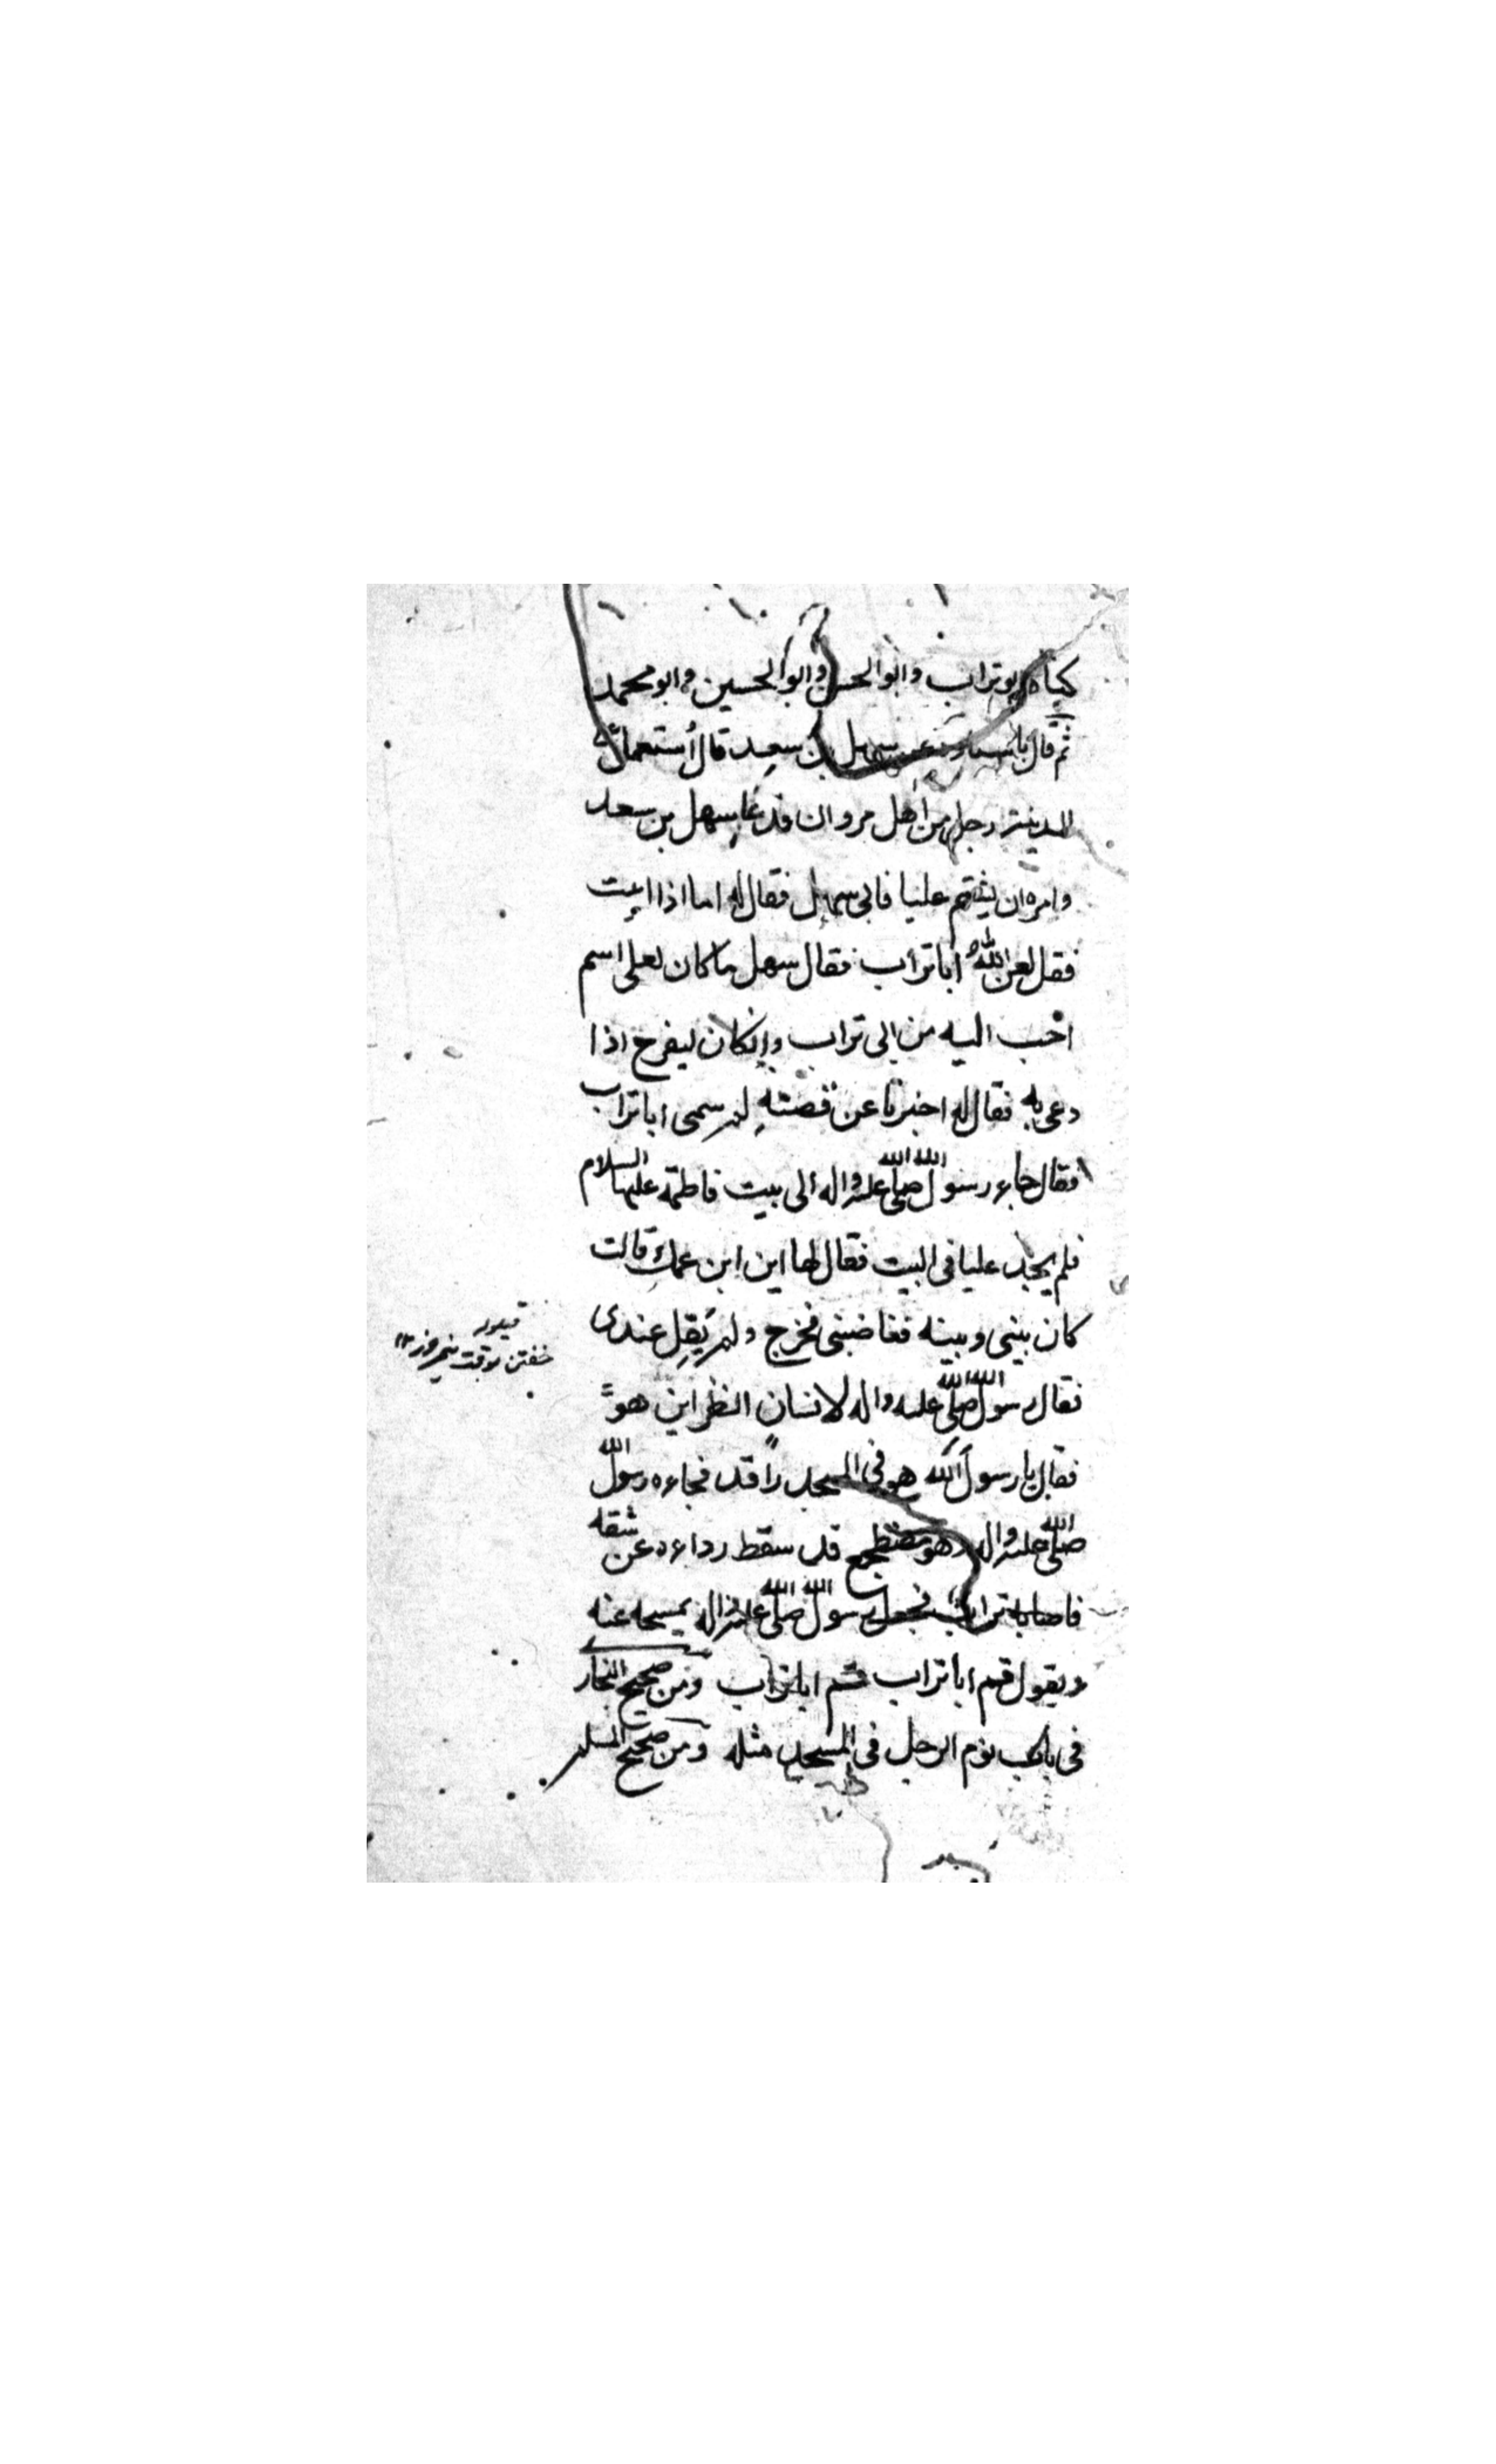 كناه ابو تراب وابو الحسن وابو الحسين وابو محمد
ثم قال باسناده عن سهل بن سعد قال أستعمل على
المدينة رجل من اهل مروان فدعا سهل بن سعد
وامره ان يشتم عليا فابى سهل فقال له اما اذا ابيت
فقل لعن الله ابا تراب فقال سهل ما كان لعلى اسم
احب اليه من ابى تراب وإنكان ليفرح اذا
دعى به فقال له اخبرنا عن قصته لم سمى ابا تراب
فقال جاء رسول الله صلى الله عليه واله الى بيت فاطمة عليها السلام
فلم يجد عليا فى البيت فقال لها اين ابن عمك قالت
كان بينى وبينه فغاضبنى فخرج ولم يَقِل عندى
فقال رسول الله صلى الله عليه واله لانسان انظر اين هو
فقال يا رسول الله هو فى المسجد راقد فجاءه رسول الله
صلى الله عليه واله وهو مضطجع قد سقط رداءه عن شقه
فاصابه تراب فجعل رسول الله صلى الله عليه واله يمسحه عنه
ويقول قم ابا تراب قم ابا تراب ومن صحيح البخارى
فى باب نوم الرجل فى المسجد مثله ومن صحيح المسلم
خفتن بوقت نيمروز ١٢